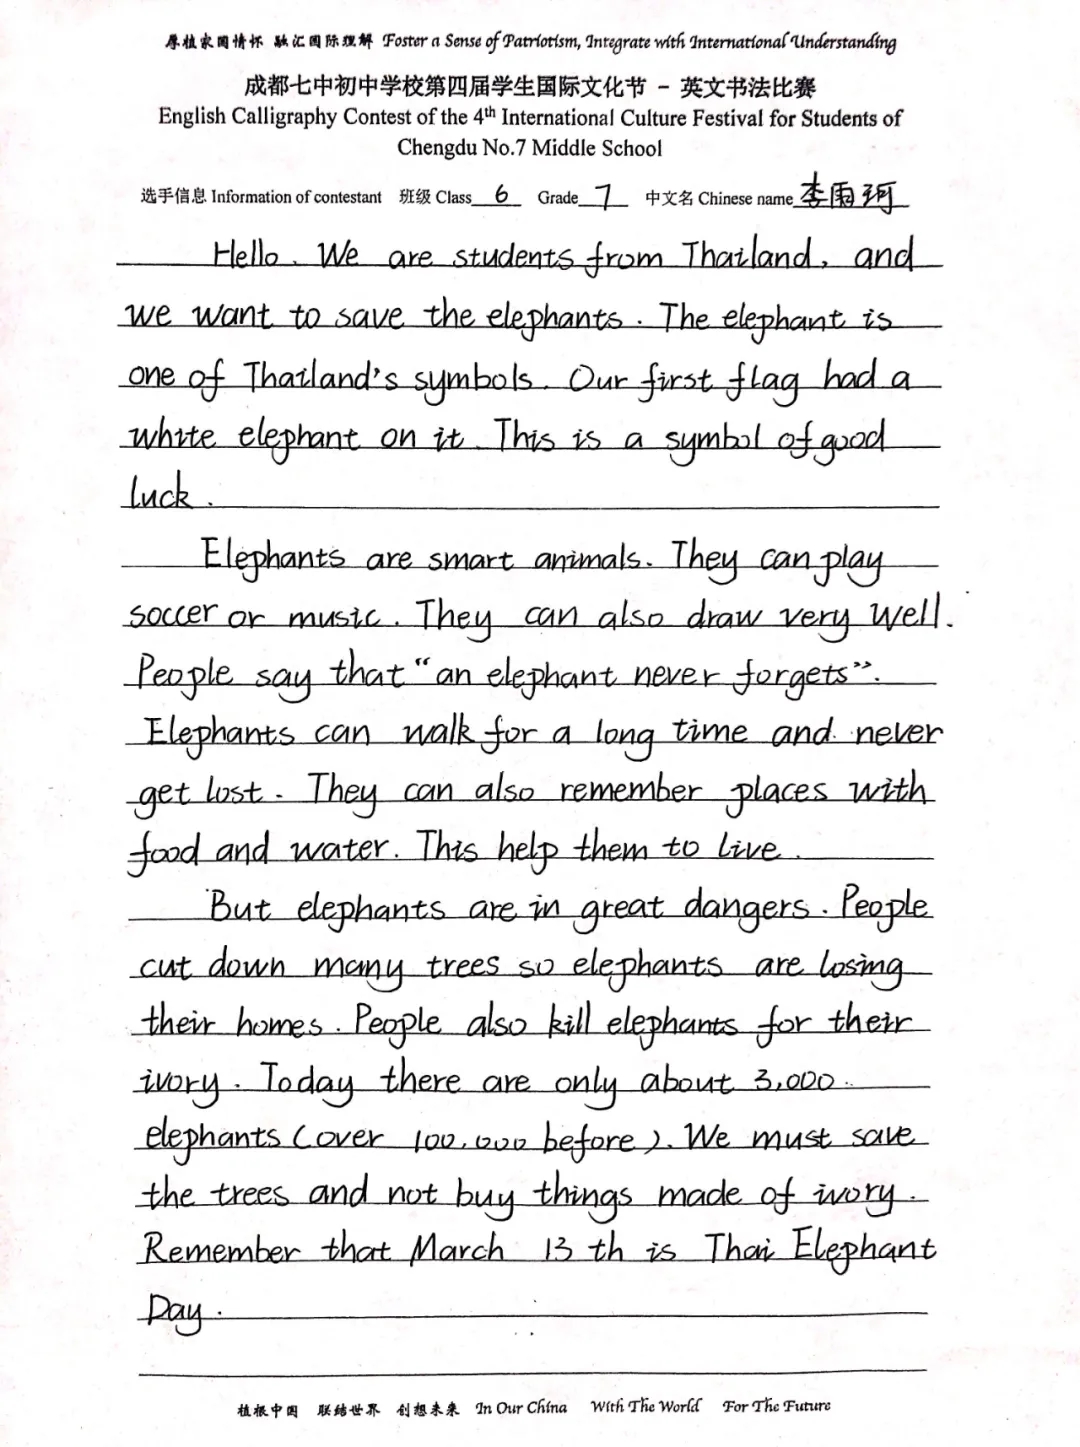 厚植家国情怀 融汇国际理解 Foster a Sense of Patriotism, Integrate with International Understanding
成都七中初中学校第四届学生国际文化节 - 英文书法比赛
English Calligraphy Contest of the 4th International Culture Festival for Students of
Chengdu No.7 Middle School
选手信息 Information of contestant 班级 Class 6 Grade 7 中文名 Chinese name 李雨珂
Hello. We are students from Thailand, and
we want to save the elephants. The elephant is
one of Thailand's symbols. Our first flag had a
white elephant on it. This is a symbol of good
luck.
Elephants are smart animals. They can play
soccer or music. They can also draw very well.
People say that "an elephant never forgets".
Elephants can walk for a long time and never
get lost. They can also remember places with
food and water. This help them to live.
But elephants are in great dangers. People
cut down many trees so elephants are losing
their homes. People also kill elephants for their
ivory. Today there are only about 3,000
elephants (over 100,000 before). We must save
the trees and not buy things made of ivory.
Remember that March 13 th is Thai Elephant
Day.
植根中国 联结世界 创想未来 In Our China With The World For The Future